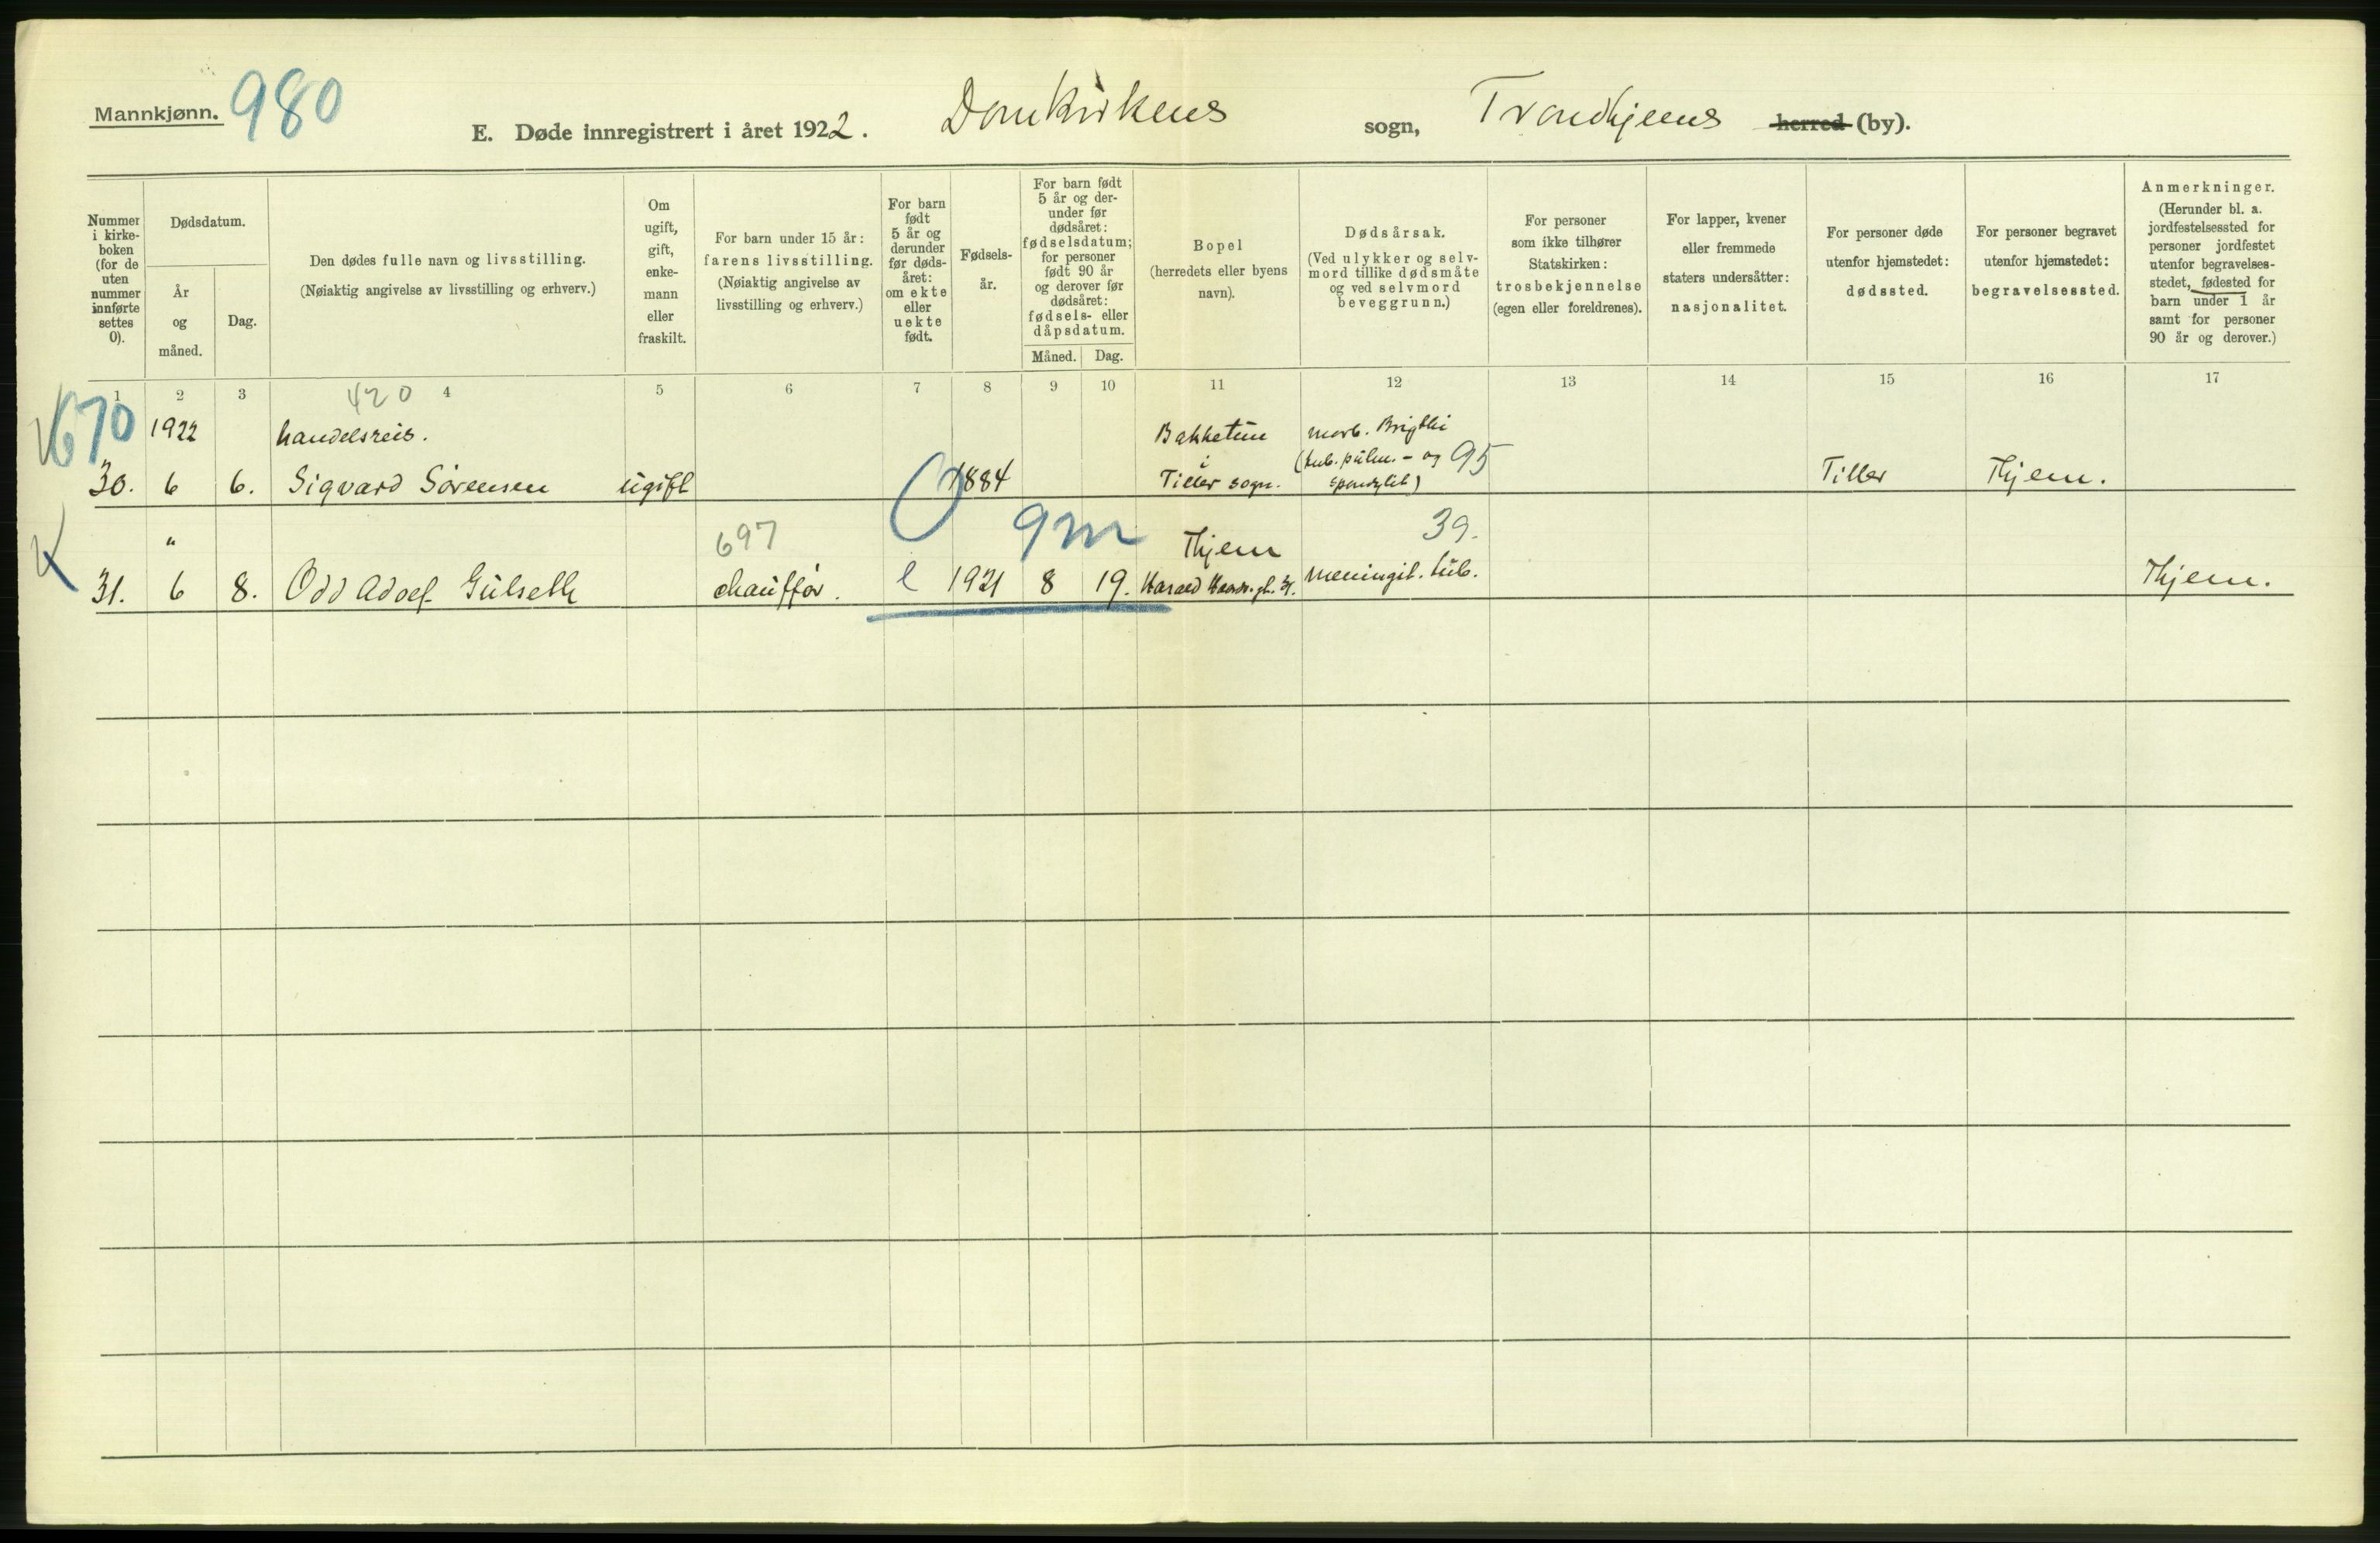 Mannkjønn. 980
E. Døde innregistrert i året 1922. Domkirkens sogn, Trondhjems herred (by).
Nummer i kirke-boken (for de uten nummer innførte settes 0).
Dødsdatum.
År og måned.
Dag.
Den dødes fulle navn og livsstilling.
(Nøiaktig angivelse av livsstilling og erhverv.)
Om ugift, gift, enke-mann eller fraskilt.
For barn under 15 år: farens livsstilling.
(Nøiaktig angivelse av livsstilling og erhverv.)
For barn født 5 år og derunder før døds-året: om ekte eller uekte født.
Fødsels-år.
For barn født 5 år og der-under før dødsåret: fødselsdatum; for personer født 90 år og derover før dødsåret: fødsels- eller dåpsdatum.
Måned. Dag.
Bopel
(herredets eller byens navn).
Dødsårsak.
(Ved ulykker og selv-mord tillike dødsmåte og ved selvmord beveggrunn.)
For personer som ikke tilhører Statskirken: trosbekjennelse (egen eller foreldrenes).
For lapper, kvener eller fremmede staters undersåtter: nasjonalitet.
For personer døde utenfor hjemstedet: dødssted.
For personer begravet utenfor hjemstedet: begravelsessted.
Anmerkninger.
(Herunder bl. a. jordfestelsessted for personer jordfestet utenfor begravelses-stedet, fødested for barn under 1 år samt for personer 90 år og derover.)
1 2 3 4 5 6 7 8 9 10 11 12 13 14 15 16 17
420
670 1922 handelsreis. Bakketun morb. Brigthi
i (tub. pulm. - og 95
30. 6 6. Sigvard Sörensen ugift 1884 Tiller sogn. spondylit) Tiller Thjem.
" 697 9m Thjem 39.
31. 6 8. Odd Adolf Gulseth chauffør. e 1921 8 19. Harald Haardr. gt. meningit. tub. Thjem.